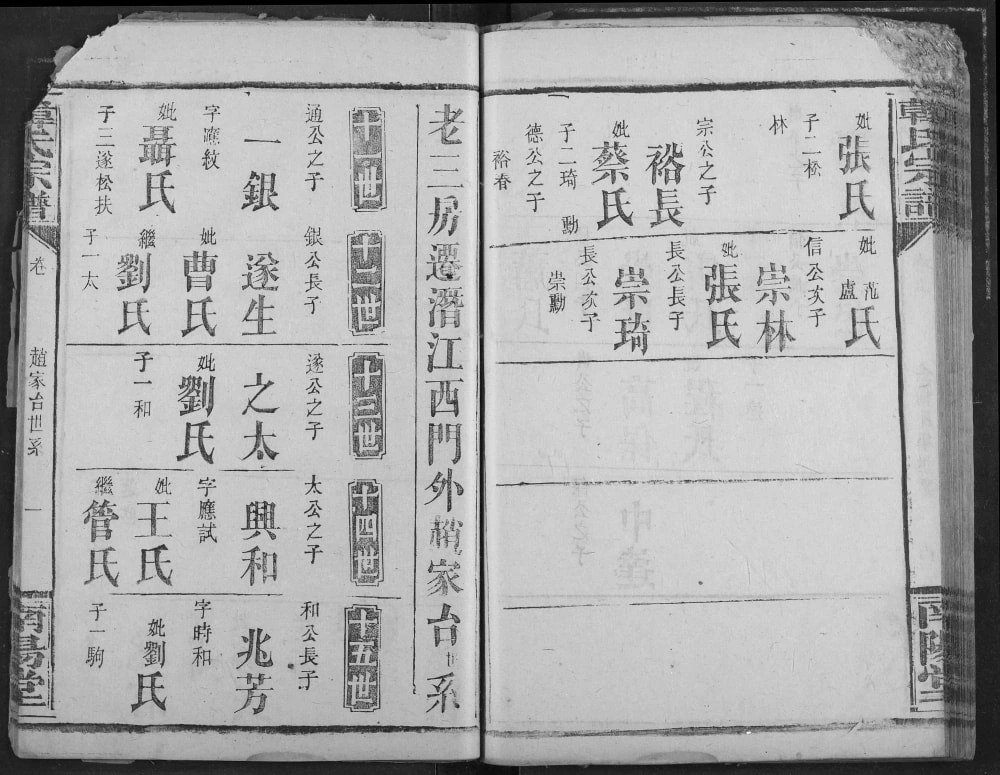 韓氏宗譜
南陽堂
妣張氏
子二松
林
宗公之子
裕長
妣蔡氏
子二琦
勳
德公之子
裕春
妣范氏
盧
信公次子
崇林
妣張氏
長公長子
崇琦
長公次子
崇勳
老三房遷潛江西門外趙家台世系
十一世
通公之子
一銀
字應紋
妣聶氏
子三遂松扶
十二世
銀公長子
遂生
妣曹氏
繼劉氏
子一太
十三世
遂公之子
之太
妣劉氏
子一和
十四世
太公之子
興和
字應試
妣王氏
繼管氏
十五世
和公長子
兆芳
字時和
妣劉氏
子一駒
韓氏宗譜
卷
趙家台世系
一
南陽堂